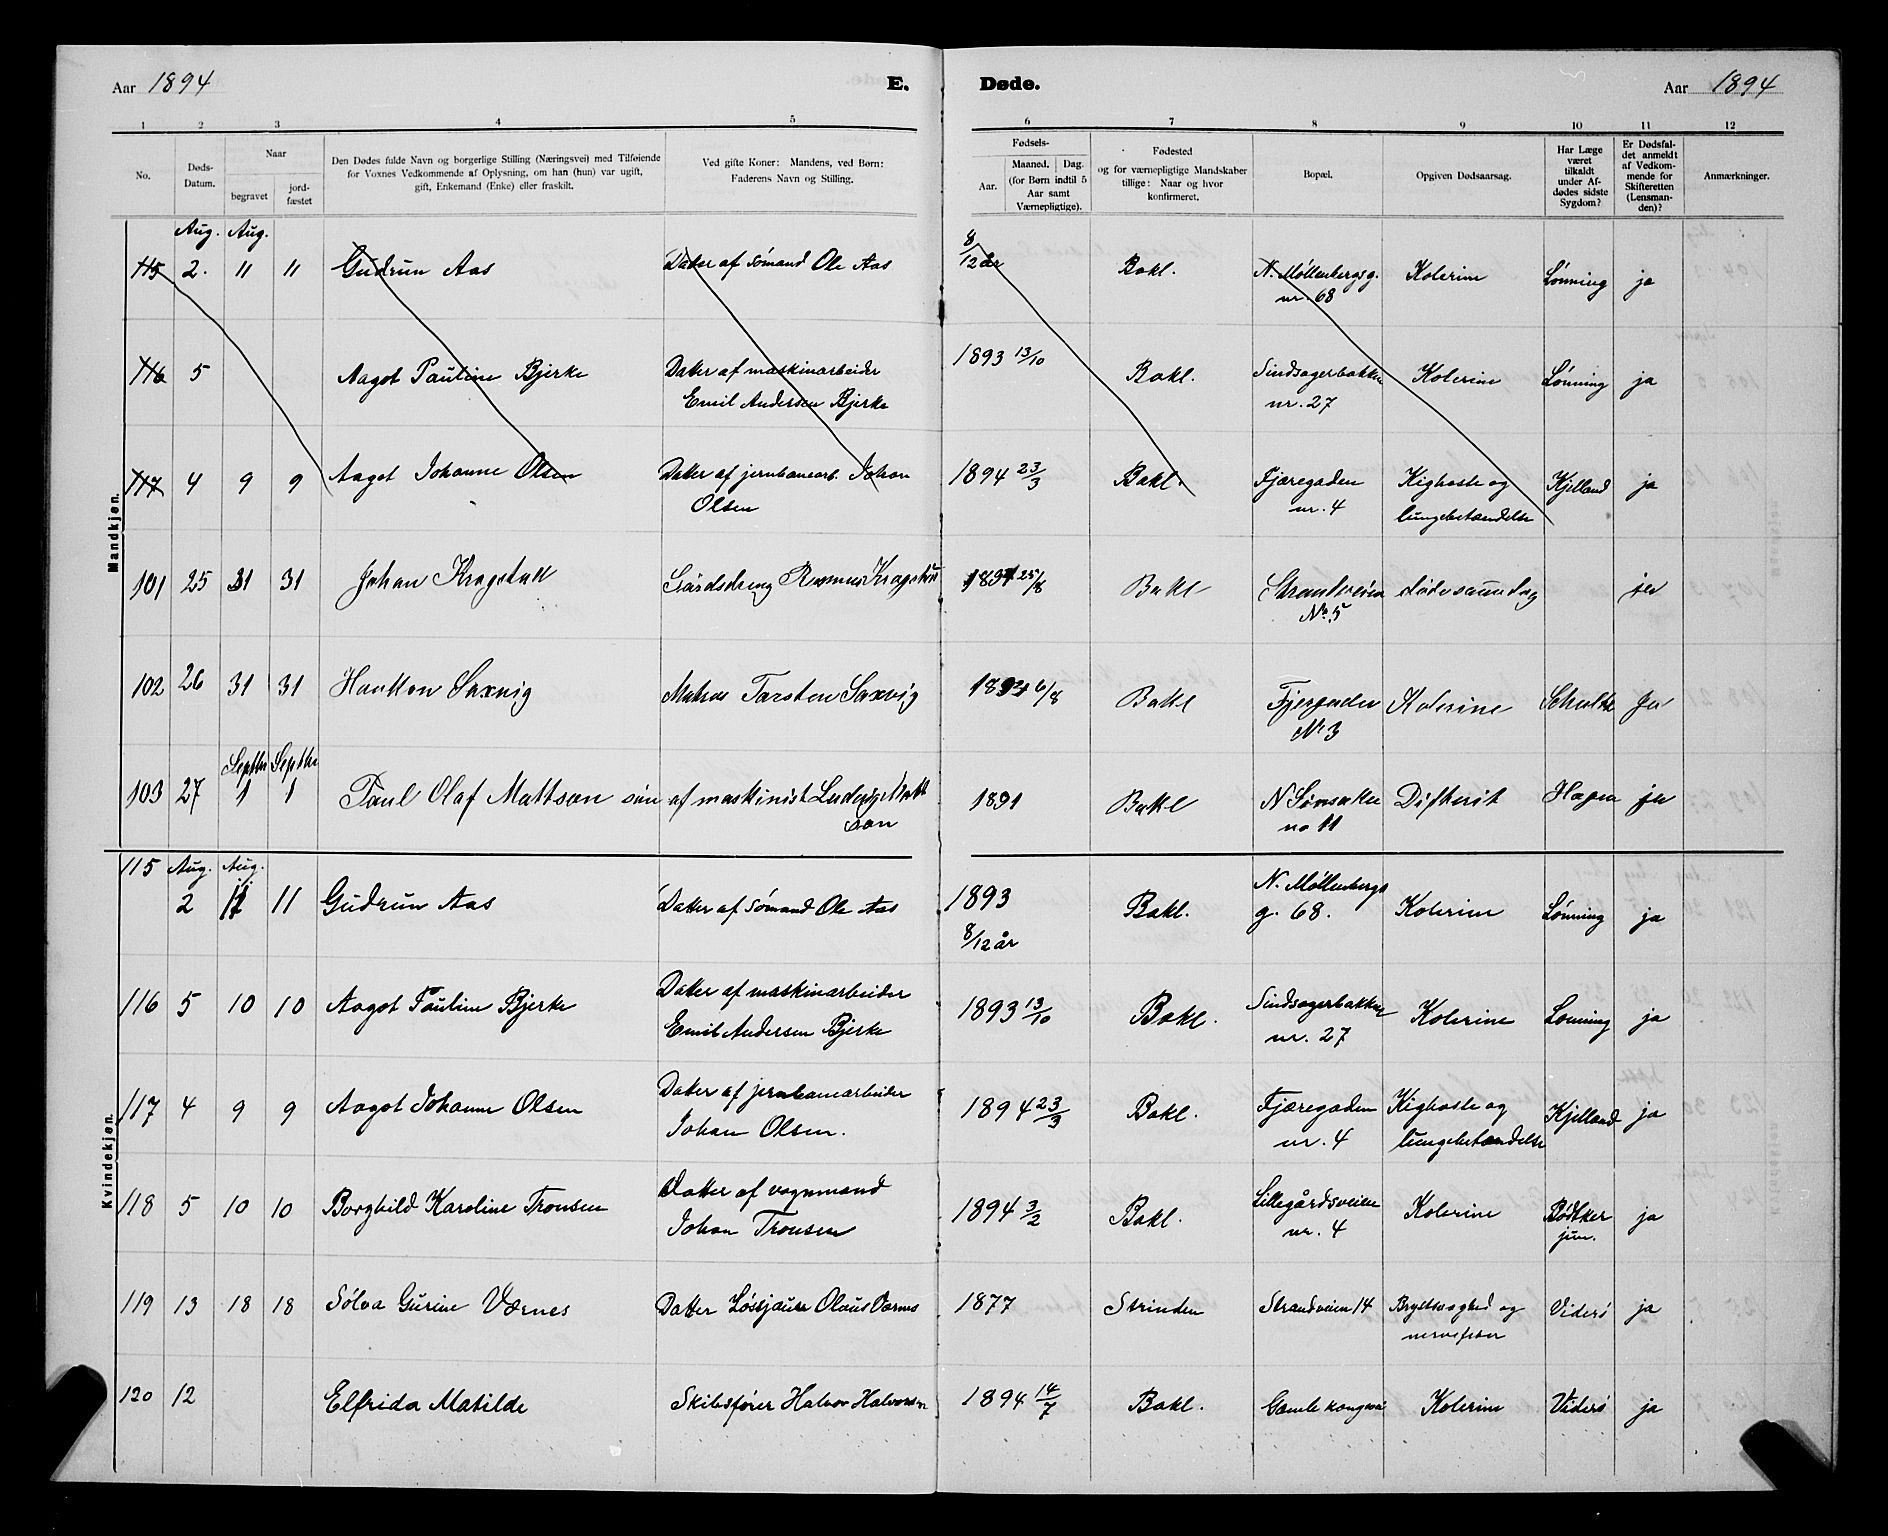 Aar 1894 E.
Døde. Aar 1894
1 2 3 4 5 6 7 8 9 10 11 12
No.
Døds-
Datum.
Naar
begravet
jord-
fæstet
Den Dødes fulde Navn og borgerlige Stilling (Næringsvei) med Tilføiende
for Voxnes Vedkommende af Oplysning, om han (hun) var ugift,
gift, Enkemand (Enke) eller fraskilt.
Ved gifte Koner: Mandens, ved Børn:
Faderens Navn og Stilling.
Fødsels-
Aar.
Maaned. Dag.
(for Børn indtil 5
Aar samt
Værnepligtige).
Fødested
og for værnepligtige Mandskaber
tillige: Naar og hvor
konfirmeret.
Bopæl.
Opgiven Dødsaarsag.
Har Læge
været
tilkaldt
under Af-
dødes sidste
Sygdom?
Er Dødsfal-
det anmeldt
af Vedkom-
mende for
Skifteretten
(Lensman-
den)?
Anmærkninger.
Mandkjøn.
Aug. Aug.
115 2. 11 11 Gudrun Aas Datter af sömand Ole Aas 8/12 år Bakl. N. Möllenbergsg. Kolerine Lönning ja
nr. 68
116 5 Aagot Pauline Bjerke Datter af maskinarbeider 1893 13/10 Bakl. Sindsagerbakken Kolerine Lönning ja
Emil Andersen Bjerke nr. 27
117 4 9 9 Aagot Johanne Olsen Datter af jernbanearb. Johan 1894 23/3 Bakl. Fjæregaden Kighoste og Kjelland ja
Olsen nr. 4 lungebetændelse
101 25 31 31 Johan Kragstad Gårdsdreng Rasmus Kragstad 1894 25/8 Bakl Strandveien No. 5 ja
102 26 31 31 Haakon Saxvig Torsten Saxvig 6/8 Bakl Kolerine Schultz Ja
No 3
Septbr Septbr
103 27 1 1 Paul Olaf Mattson sön af maskinist Ludvig Matt 1891 Bakl Difterit ja
son no 11
Kvindekjøn.
115 Aug. Aug.
2 11 11 Gudrun Aas Datter af Sömand Ole Aas 1893 Bakl. N. Möllenbergs Kolerine Lönning ja
8/12 år g. 68.
116 5 10 10 Aagot Pauline Bjerke Datter af maskinarbeider 1893 13/10 Bakl. Sindsagerbakken Kolerine Lönning ja
Emil Andersen Bjerke nr. 27
117 4 9 9 Aagot Johanne Olsen Datter af jernbanearbeider 1894 23/3 Bakl. Fjæregaden Kighoste og Kjelland ja
Johan Olsen. nr. 4 lungebetændelse
118 5 10 10 Borghild Karoline Tronsen Datter af vognmand 1894 3/2 Bakl. Lillegårdsveien Kolerine Bödtker ja
Johan Tronsen nr. 4 jun.
119 13 18 18 Sölva Gurine Værnes Datter Løssjauer Olaus Værnes 1877 Strinden Strandveien 14 Brystsvaghed og Viderö ja
nervefeber
120 12 Elfrida Matilde Skibsfører Halvor Halvorsen 1894 14/7 Bakl. Gamle kongevei Kolerine Viderö ja